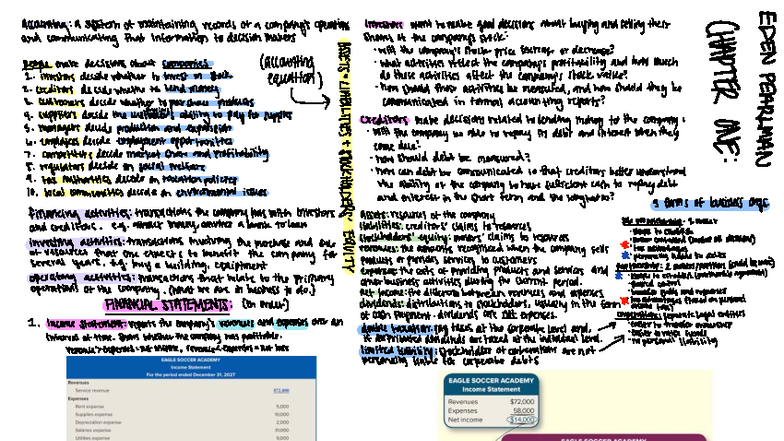 Accounting: a system of maintaining records of a company's operations
and communicating that information to decision makers
People make decisions about companies
1. investors decide whether to invest in stock
2. creditors decide whether to lend money
3. customers decide whether to purchase products
4. suppliers decide the customer's ability to pay for supplies
5. managers decide production and expansion
6. employees decide employment opportunities
7. competitors decide market share and profitability
8. regulators decide on social welfare
9. tax authorities decide on taxation policies
10. local communities decide on environmental issues
(accounting
equation)
ASSETS = LIABILITIES + STOCKHOLDERS' EQUITY
financing activities: transactions the company has with investors
and creditors. e.g. direct money another a bank to loan
investing activities: transactions involving the purchase and sale
of resources that one expects to benefit the company for
several years. e.g. buy a building, equipment
operating activities: transactions that relate to the primary
operations of the company (what we are in business to do.)
FINANCIAL STATEMENTS: (in order)
1. Income Statement: reports the company's revenues and expenses over an
interval of time. Shows whether the company was profitable.
revenue > expenses = net income, revenue < expenses = net loss
EAGLE SOCCER ACADEMY
Income Statement
For the period ended December 31, 2027
Revenues
Service revenue $72,000
Expenses
Rent expense 5,000
Supplies expense 10,000
Depreciation expense 2,000
Salaries expense
Utilities expense 9,000
Investors want to make good decisions about buying and selling their
shares of the company's stock:
· Will the company's stock price increase or decrease?
· What activities affect the company's profitability and how much
do these activities affect the company's stock value?
· How should those activities be measured, and how should they be
communicated in formal accounting reports?
Creditors make decisions related to lending money to the company:
· Will the company be able to repay its debt and interest when they
come due?
· How should debt be measured?
· How can debt be communicated so that creditors better understand
the ability of the company to have sufficient cash to repay debt
and interest in the short term and the long term?
Assets: resources of the company
liabilities: creditors' claims to resources
stockholders' equity: owners' claims to resources
revenues: the amounts recognized when the company sells
products or provides services to customers
expenses: the costs of providing products and services and
other business activities during the current period.
net income: the difference between revenues and expenses
dividends: distributions to stockholders, usually in the form
of cash payment. dividends are not expenses.
double taxation: pay taxes at the corporate level and
if distributed dividends are taxed at the individual level.
limited liability: stockholders of corporations are not
personally liable for corporate debts
EAGLE SOCCER ACADEMY
Income Statement
Revenues $72,000
Expenses 58,000
Net income $14,000
EAGLE SOCCER ACADEMY
EDEN PEARLMAN
CHAPTER ONE:
3 forms of business orgs.
Sole proprietorship: 1 owner
· simple to establish
· tax advantages
· personally liable to debts
Partnership: 2 owners/partners
· shared control
Corporation: separate legal entities
· easier to transfer ownership
· easier to raise funds
· no personal liability